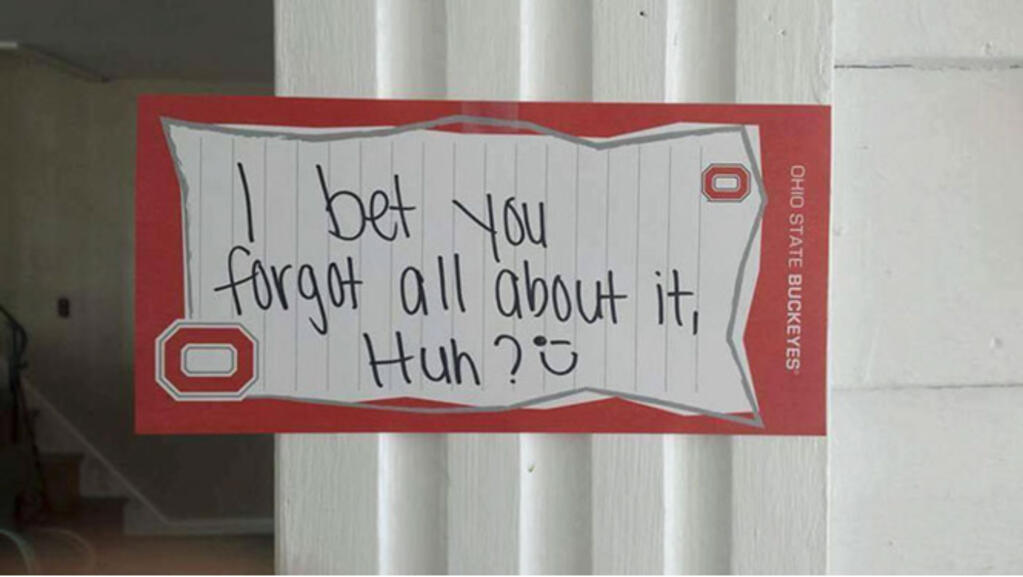 I bet you
forgot all about it,
Huh?
OHIO STATE BUCKEYES®
O
O